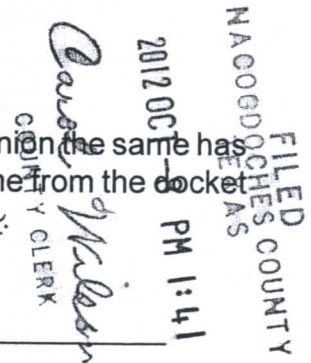 FILED
NACOGDOCHES COUNTY
TEXAS
2012 OCT PM 1:41
Wilson
COUNTY CLERK
nion the same has
ne from the docket